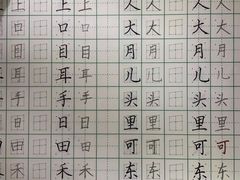 上 上 上 人 人 人 人
口 口 口 大 大 大 大
目 目 目 月 月 月 月
耳 耳 耳 儿 儿 儿 儿
手 手 手 头 头 头 头
日 日 日 里 里 里 里
田 田 田 可 可 可 可
禾 禾 禾 东 东 东 东